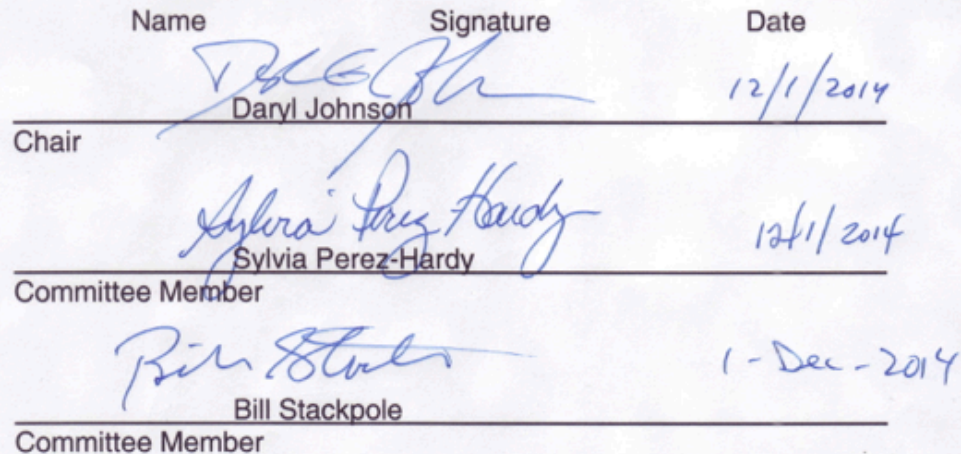 Name Signature Date
Daryl Johnson 12/1/2014
Chair
Sylvia Perez Hardy 12/1/2014
Sylvia Perez-Hardy
Committee Member
Bill Stackpole 1-Dec-2014
Committee Member